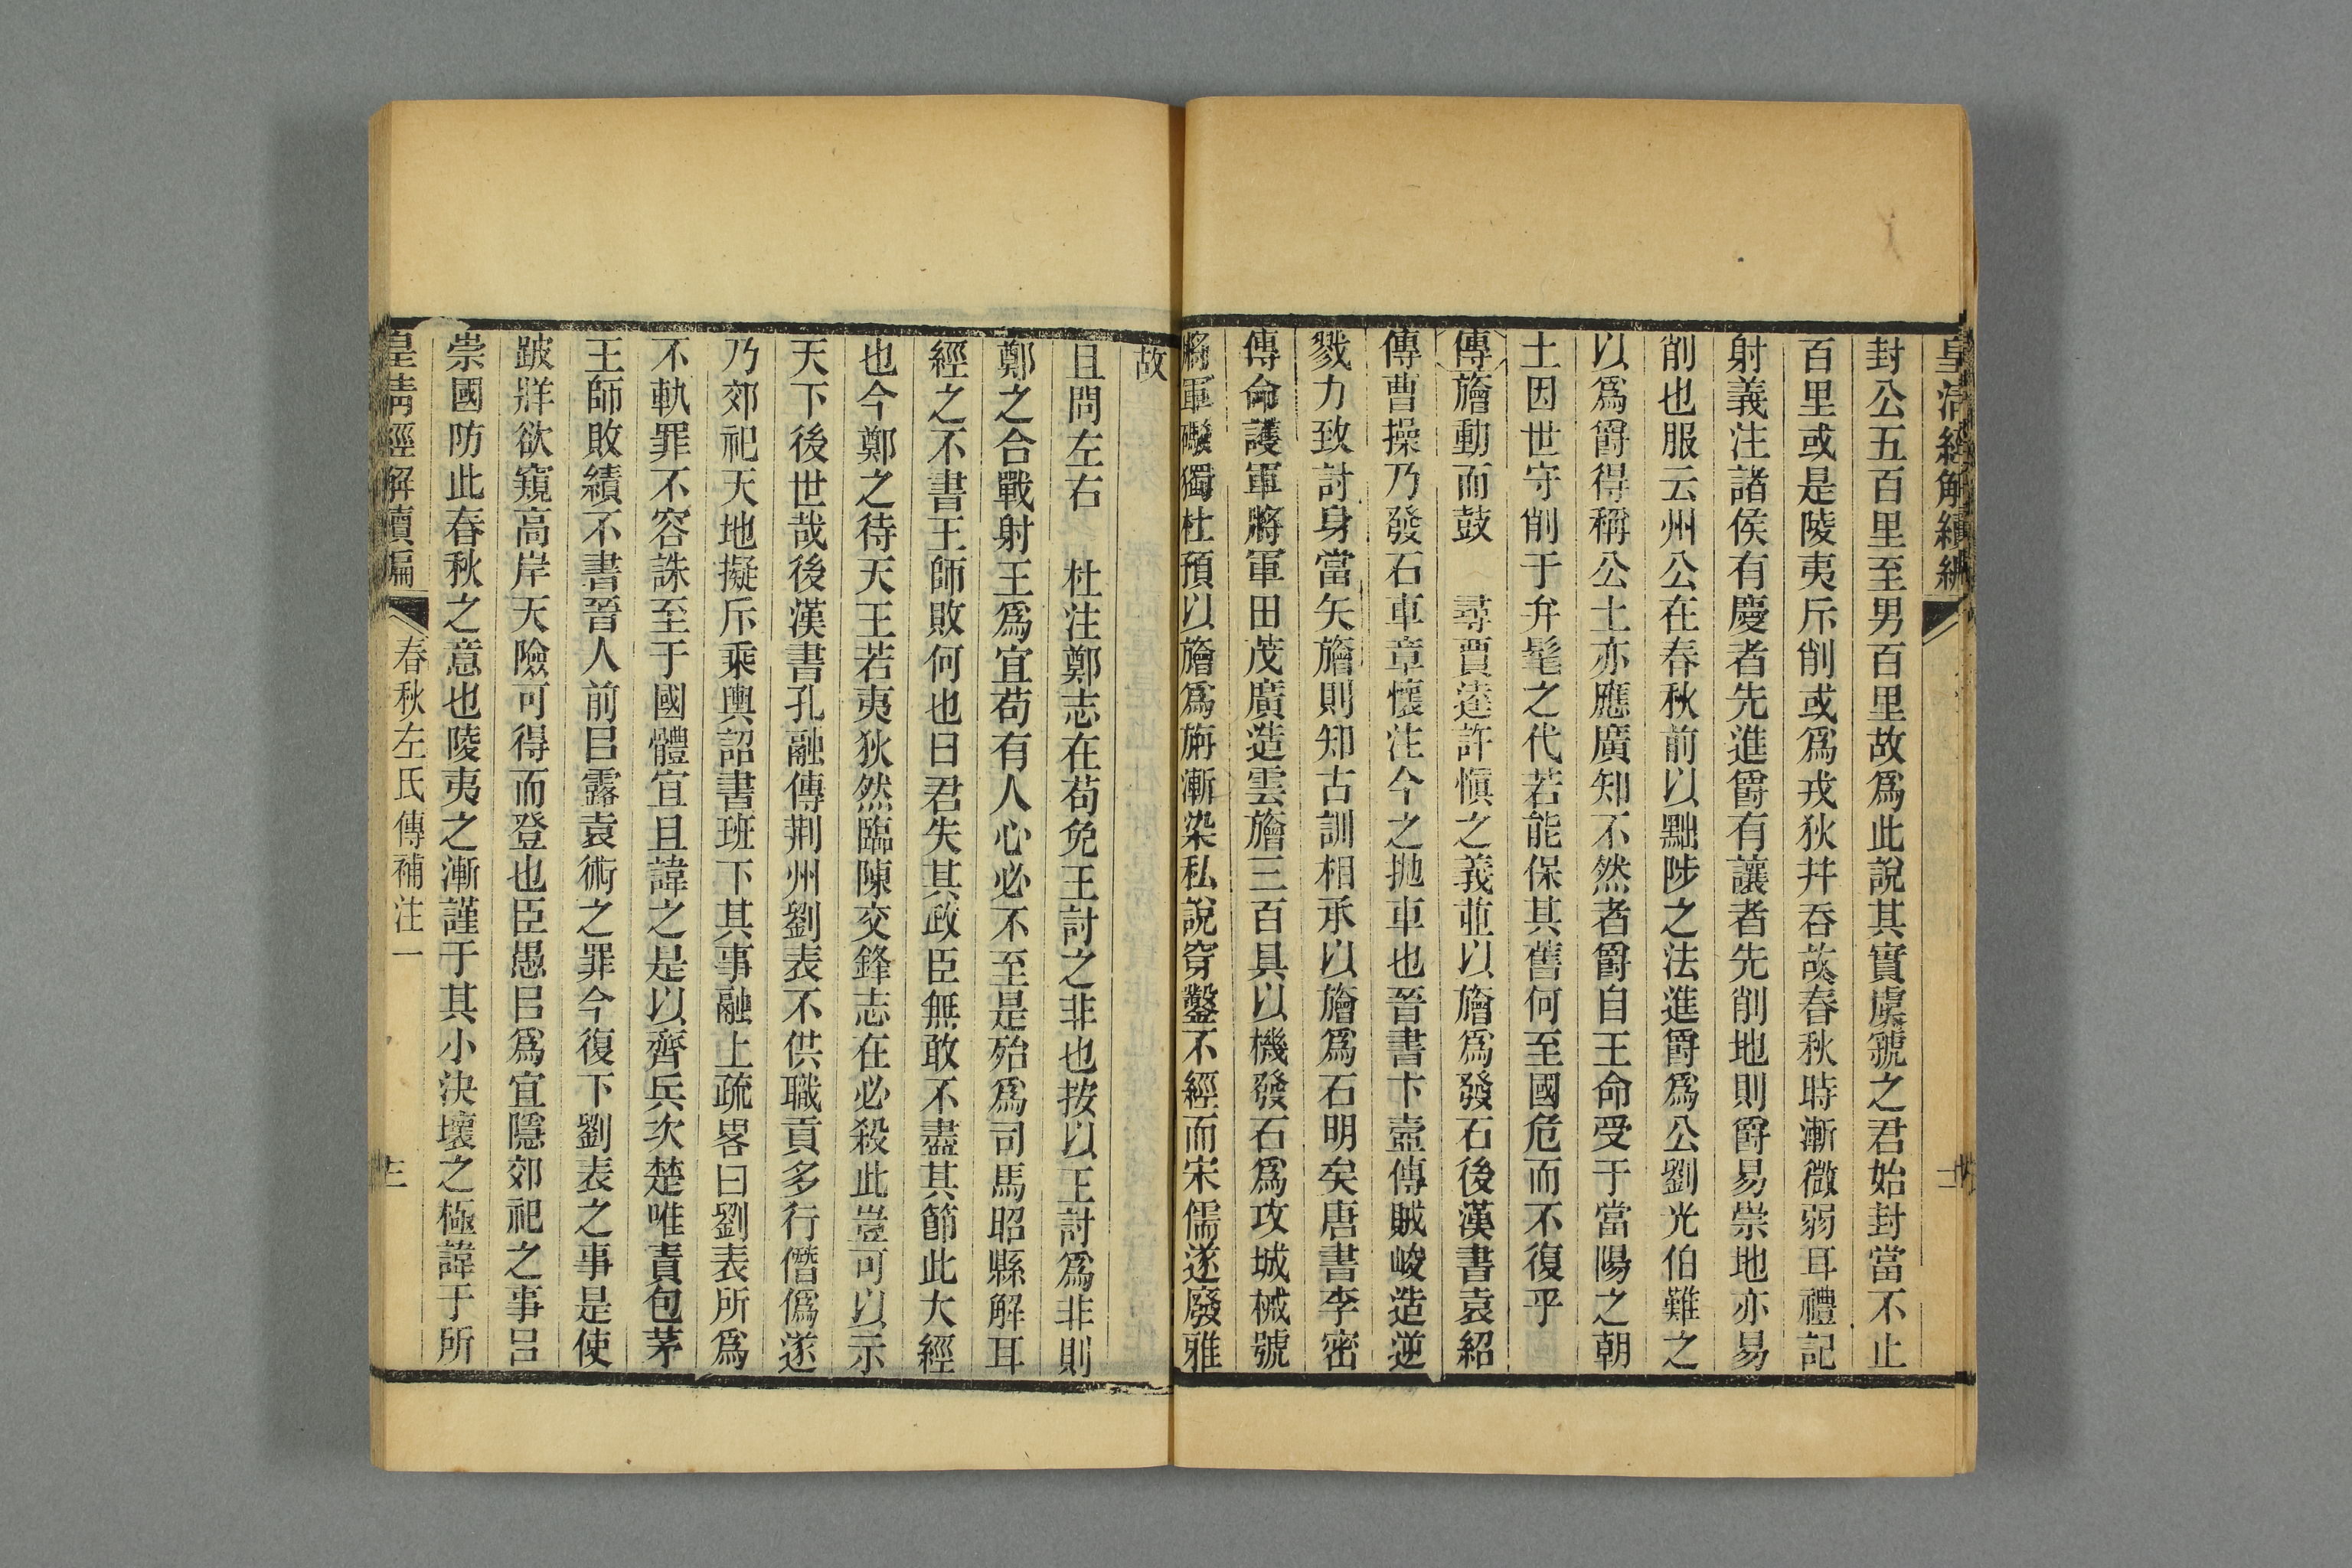 皇清經解續編
封公五百里至男百里故爲此說其實虞虢之君始封當不止
百里或是陵夷斥削或爲戎狄幷吞故春秋時漸微弱耳禮記
射義注諸侯有慶者先進爵有讓者先削地則爵易崇地亦易
削也服云州公在春秋前以黜陟之法進爵爲公劉光伯難之
以爲爵得稱公土亦應廣知不然者爵自王命受于當陽之朝
土因世守削于弁髦之代若能保其舊何至國危而不復乎
傳旝動而鼓 尋賈逵許愼之義並以旝爲發石後漢書袁紹
傳曹操乃發石車章懷注今之抛車也晉書卞壼傳賊峻造逆
戮力致討身當矢旝則知古訓相承以旝爲石明矣唐書李密
傳命護軍將軍田茂廣造雲旝三百具以機發石爲攻城械號
將軍礮獨杜預以旝爲旃漸染私說穿鑿不經而宋儒遂廢雅
故
且問左右 杜注鄭志在苟免王討之非也按以王討爲非則
鄭之合戰射王爲宜苟有人心必不至是殆爲司馬昭縣解耳
經之不書王師敗何也曰君失其政臣無敢不盡其節此大經
也今鄭之待天王若夷狄然臨陳交鋒志在必殺此豈可以示
天下後世哉後漢書孔融傳荆州劉表不供職貢多行僭僞遂
乃郊祀天地擬斥乘輿詔書班下其事融上疏畧曰劉表所爲
不軌罪不容誅至于國體宜且諱之是以齊兵次楚唯責包茅
王師敗績不書晉人前㠯露袁術之罪今復下劉表之事是使
跛牂欲窺高岸天險可得而登也臣愚㠯爲宜隱郊祀之事㠯
崇國防此春秋之意也陵夷之漸謹于其小決壞之極諱于所
皇清經解續編 春秋左氏傳補注一